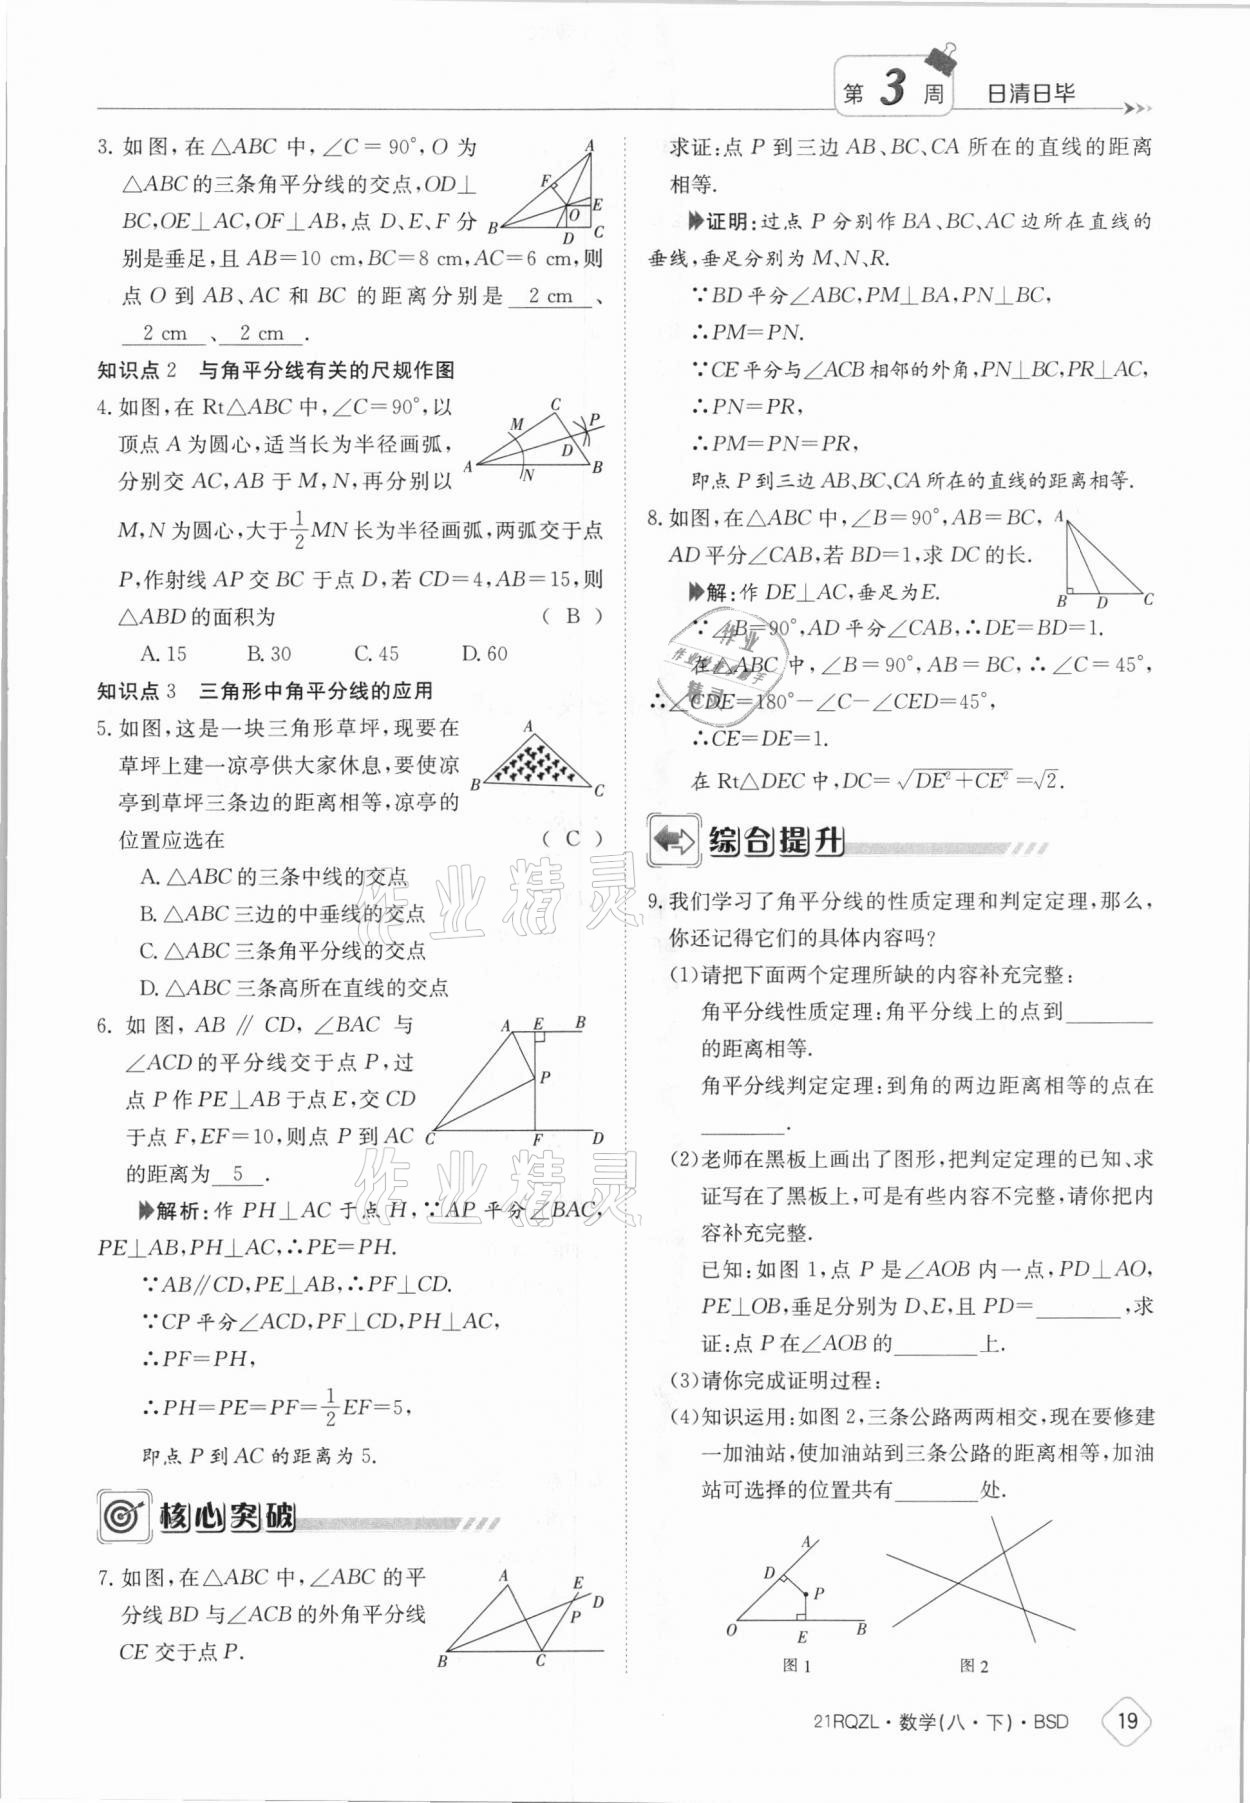 第 3 周 日清日毕
3. 如图,在△ABC 中,∠C=90°,O 为
△ABC的三条角平分线的交点,OD⊥
BC,OE⊥AC,OF⊥AB,点 D、E、F 分
别是垂足,且 AB=10 cm,BC=8 cm,AC=6 cm,则
点 O 到 AB、AC 和 BC 的距离分别是 2 cm 、
2 cm 、 2 cm .
A F E O B D C
知识点2 与角平分线有关的尺规作图
4. 如图,在 Rt△ABC 中,∠C=90°,以
顶点 A 为圆心,适当长为半径画弧,
分别交 AC,AB 于 M,N,再分别以
M,N 为圆心,大于1/2MN 长为半径画弧,两弧交于点
P,作射线 AP 交 BC 于点 D,若 CD=4,AB=15,则
△ABD的面积为 ( B )
A. 15 B. 30 C. 45 D. 60
C M P D A N B
知识点3 三角形中角平分线的应用
5. 如图,这是一块三角形草坪,现要在
草坪上建一凉亭供大家休息,要使凉
亭到草坪三条边的距离相等,凉亭的
位置应选在 ( C )
A. △ABC的三条中线的交点
B. △ABC三边的中垂线的交点
C. △ABC三条角平分线的交点
D. △ABC三条高所在直线的交点
A B C
6. 如图, AB ∥ CD, ∠BAC 与
∠ACD的平分线交于点 P,过
点 P 作 PE⊥AB 于点 E,交 CD
于点 F,EF=10,则点 P 到 AC
的距离为 5 .
A E B P C F D
解析:作 PH⊥AC 于点 H,∵AP 平分∠BAC,
PE⊥AB,PH⊥AC,∴PE=PH.
∵AB∥CD,PE⊥AB,∴PF⊥CD.
∵CP 平分∠ACD,PF⊥CD,PH⊥AC,
∴PF=PH,
∴PH=PE=PF=1/2EF=5,
即点 P 到 AC 的距离为 5.
核心突破
7. 如图,在△ABC 中,∠ABC 的平
分线 BD 与∠ACB的外角平分线
CE 交于点 P.
A E D P B C
求证:点 P 到三边 AB、BC、CA 所在的直线的距离
相等.
证明:过点 P 分别作 BA、BC、AC 边所在直线的
垂线,垂足分别为 M、N、R.
∵BD 平分∠ABC,PM⊥BA,PN⊥BC,
∴PM=PN.
∵CE 平分与∠ACB 相邻的外角,PN⊥BC,PR⊥AC,
∴PN=PR,
∴PM=PN=PR,
即点 P 到三边 AB、BC、CA 所在的直线的距离相等.
8. 如图,在△ABC 中,∠B=90°,AB=BC,
AD平分∠CAB,若 BD=1,求 DC的长.
A B D C
解:作 DE⊥AC,垂足为E.
∵∠B=90°,AD 平分∠CAB,∴DE=BD=1.
在△ABC 中,∠B=90°,AB=BC,∴∠C=45°,
∴∠CDE=180°-∠C-∠CED=45°,
∴CE=DE=1.
在 Rt△DEC 中,DC=√(DE²+CE²)=√2.
综合提升
9. 我们学习了角平分线的性质定理和判定定理,那么,
你还记得它们的具体内容吗?
(1)请把下面两个定理所缺的内容补充完整:
角平分线性质定理:角平分线上的点到________
的距离相等.
角平分线判定定理:到角的两边距离相等的点在
________.
(2)老师在黑板上画出了图形,把判定定理的已知、求
证写在了黑板上,可是有些内容不完整,请你把内
容补充完整.
已知:如图 1,点 P 是∠AOB 内一点,PD⊥AO,
PE⊥OB,垂足分别为 D、E,且 PD=________,求
证:点 P 在∠AOB 的________上.
(3)请你完成证明过程:
(4)知识运用:如图 2,三条公路两两相交,现在要修建
一加油站,使加油站到三条公路的距离相等,加油
站可选择的位置共有________处.
A D P O E B
图 1 图 2
作业精灵
作业精灵
21RQZL·数学(八·下)·BSD 19